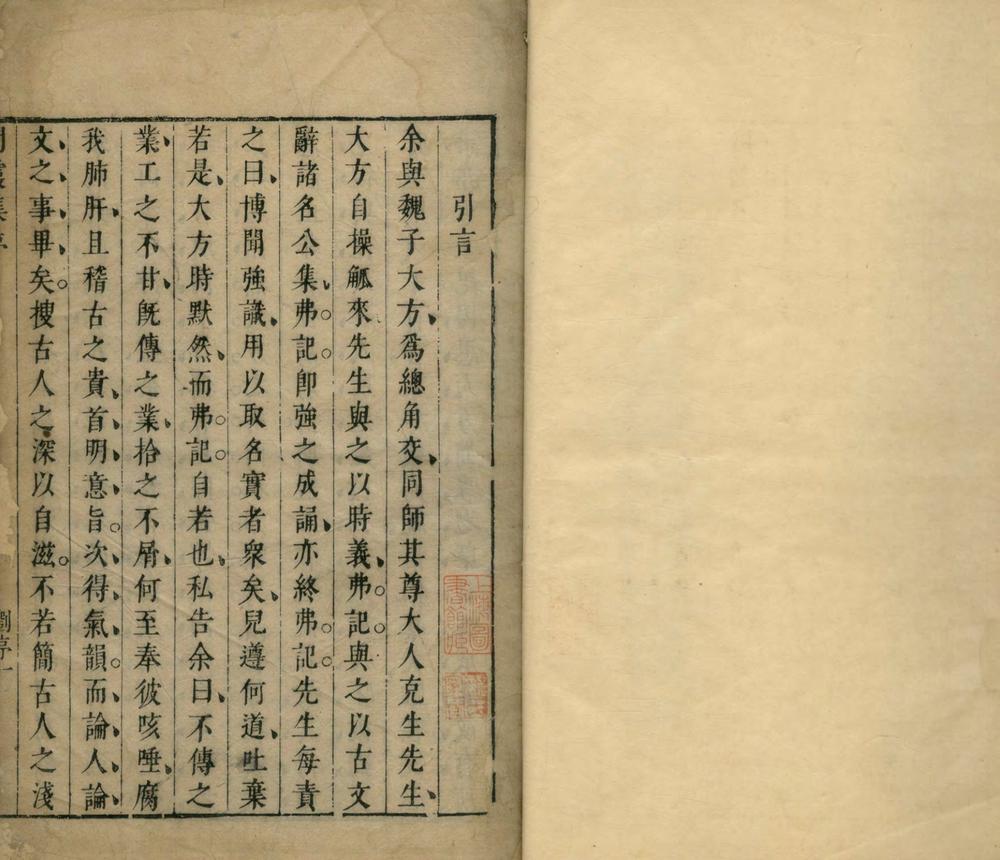 引言
余與魏子大方、爲總角交、同師其尊大人克生先生、
大方自操觚來先生與之以時義、弗。記。與之以古文
辭諸名公集、弗。記。卽強之成誦、亦終弗。記。先生每責
之曰、博聞強識、用以取名實者衆矣、兒遵何道、吐棄
若是、大方時默然、而弗。記。自若也、私告余曰、不傳之
業、工之不甘、旣傳之業、拾之不屑、何至奉彼咳唾、腐
我肺肝、且稽古之貴、首、明、意、旨。次、得、氣、韻。而、論、人、論、
文、之、事、畢、矣。搜古人之深以自滋。不若簡古人之淺
上海圖書館藏